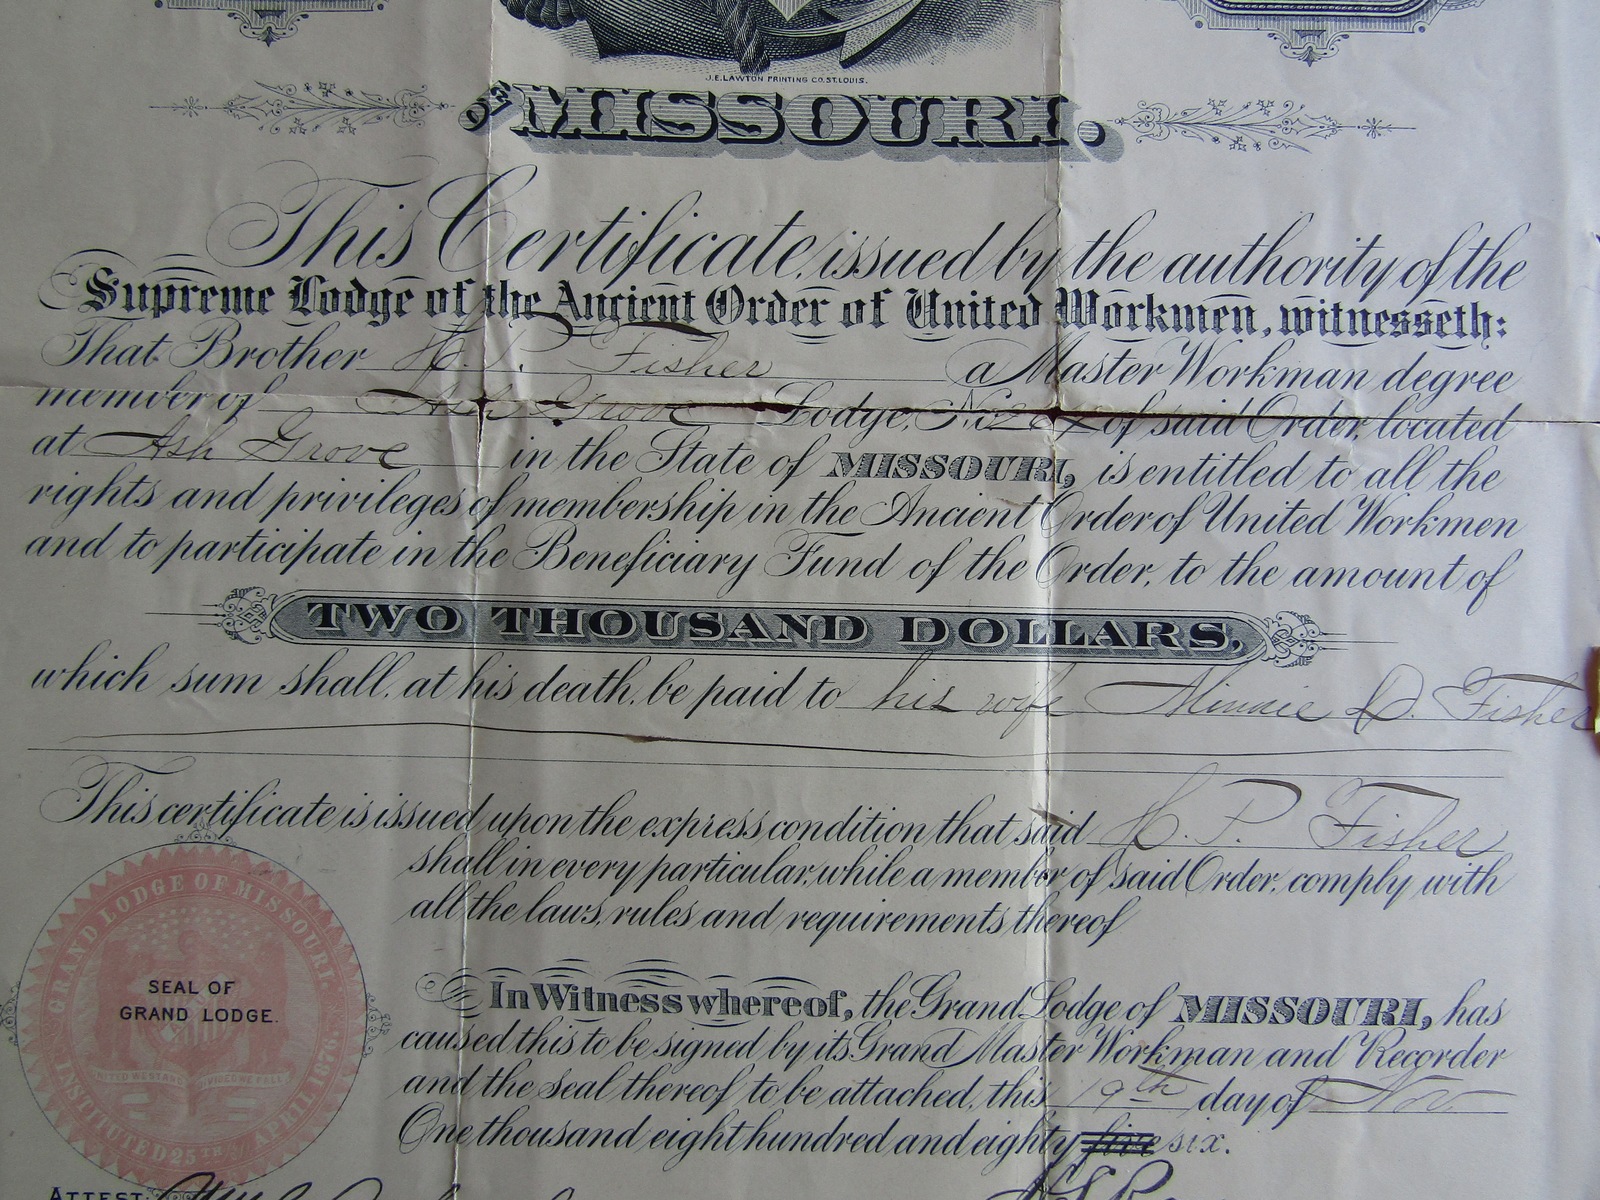 J. E. LAWTON PRINTING CO. ST. LOUIS.
OF MISSOURI.
This Certificate, issued by the authority of the
Supreme Lodge of the Ancient Order of United Workmen, witnesseth:
That Brother H. P. Fisher a Master Workman degree
member of Ash Grove Lodge, No. of said Order, located
at Ash Grove in the State of MISSOURI, is entitled to all the
rights and privileges of membership in the Ancient Order of United Workmen
and to participate in the Beneficiary Fund of the Order, to the amount of
TWO THOUSAND DOLLARS,
which sum shall, at his death, be paid to his wife Minnie D. Fisher
This certificate is issued upon the express condition that said H. P. Fisher
shall in every particular, while a member of said Order, comply with
all the laws, rules and requirements thereof
GRAND LODGE OF MISSOURI.
SEAL OF
GRAND LODGE.
UNITED WE STAND DIVIDED WE FALL
INSTITUTED 25TH APRIL 1876.
In Witness whereof, the Grand Lodge of MISSOURI, has
caused this to be signed by its Grand Master Workman and Recorder
and the seal thereof to be attached, this 19th day of Nov
One thousand eight hundred and eighty five six.
ATTEST: